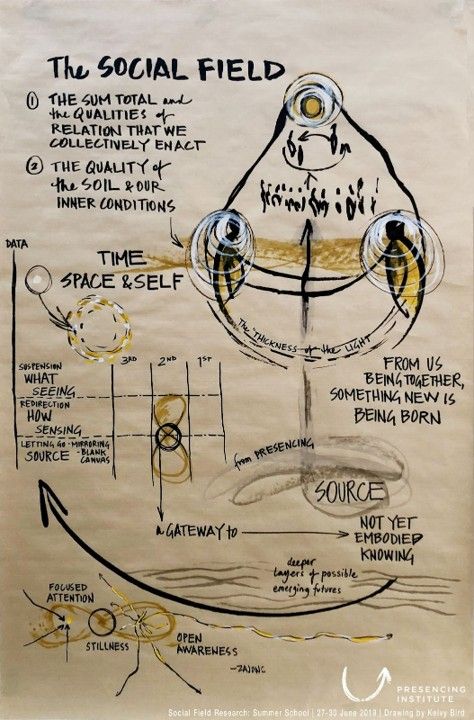 The SOCIAL FIELD
① THE SUM TOTAL and
the QUALITIES of
RELATION THAT WE
COLLECTIVELY ENACT
② THE QUALITY of
the SOIL & OUR
INNER CONDITIONS
DATA
TIME
SPACE & SELF
The THICKNESS of the LIGHT
3RD 2ND 1ST
SUSPENSION
WHAT
SEEING
REDIRECTION
HOW
SENSING
LETTING GO - MIRRORING
SOURCE - BLANK
CANVAS
FROM US
BEING TOGETHER,
SOMETHING NEW IS
BEING BORN
from PRESENCING
SOURCE
a GATEWAY to
NOT YET
EMBODIED
KNOWING
deeper
layers of possible
emerging futures
FOCUSED
ATTENTION
STILLNESS
OPEN
AWARENESS
- ZAJONC
PRESENCING
INSTITUTE
Social Field Research: Summer School | 27-30 June 2019 | Drawing by Kelvy Bird